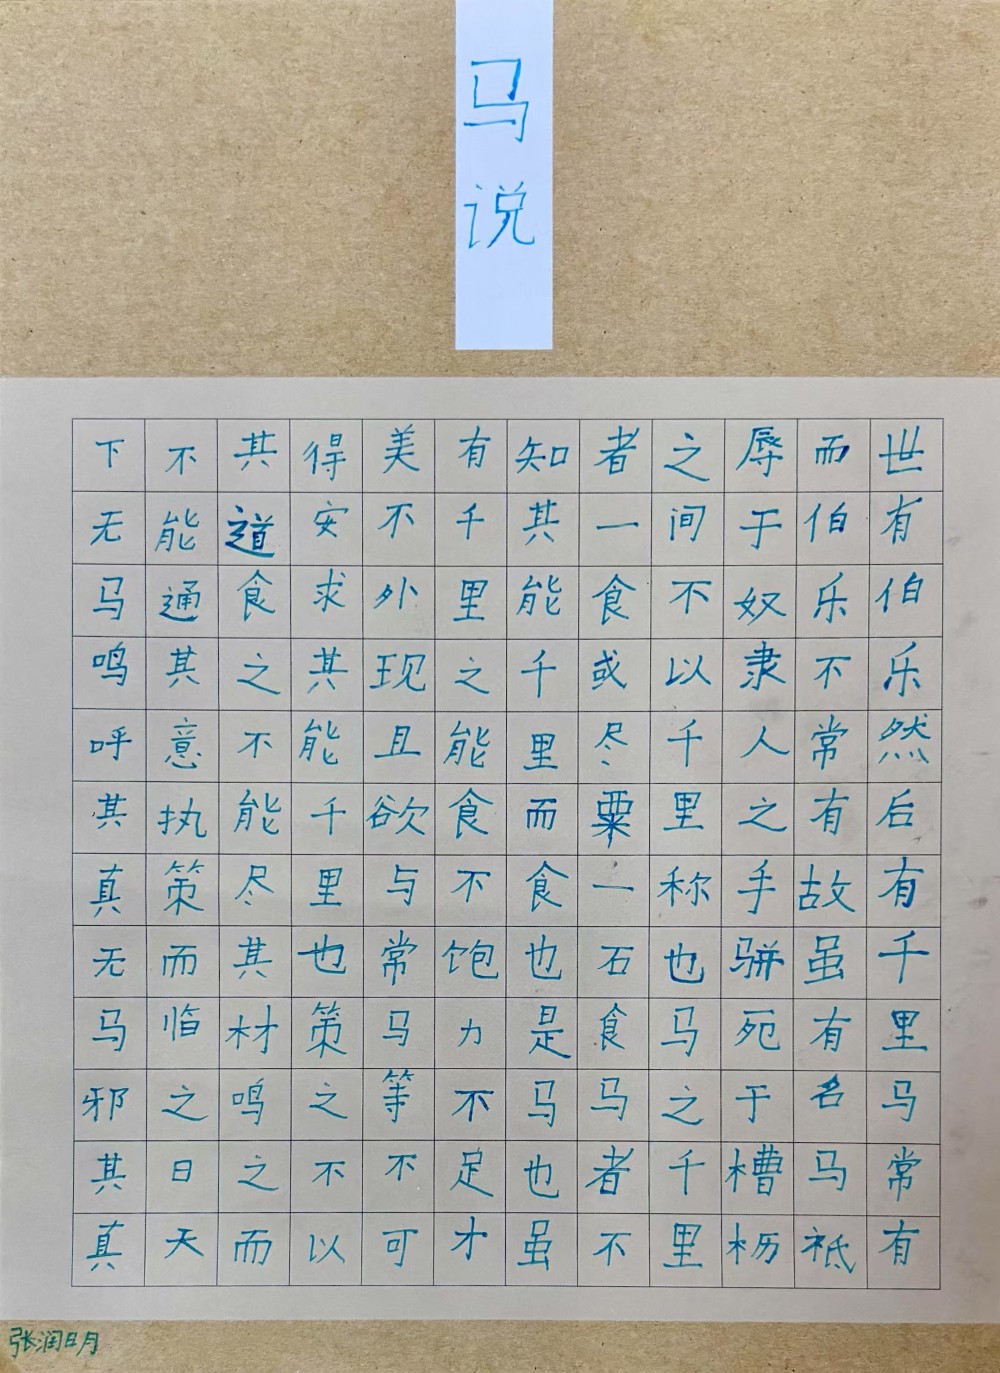 马说
世有伯乐然后有千里马常有
而伯乐不常有故虽有名马祗
辱于奴隶人之手骈死于槽枥
之间不以千里称也马之千里
者一食或尽粟一石食马者不
知其能千里而食也是马也虽
有千里之能食不饱力不足才
美不外现且欲与常马等不可
得安求其能千里也策之不以
其道食之不能尽其材鸣之而
不能通其意执策而临之曰天
下无马鸣呼其真无马邪其真
张润明